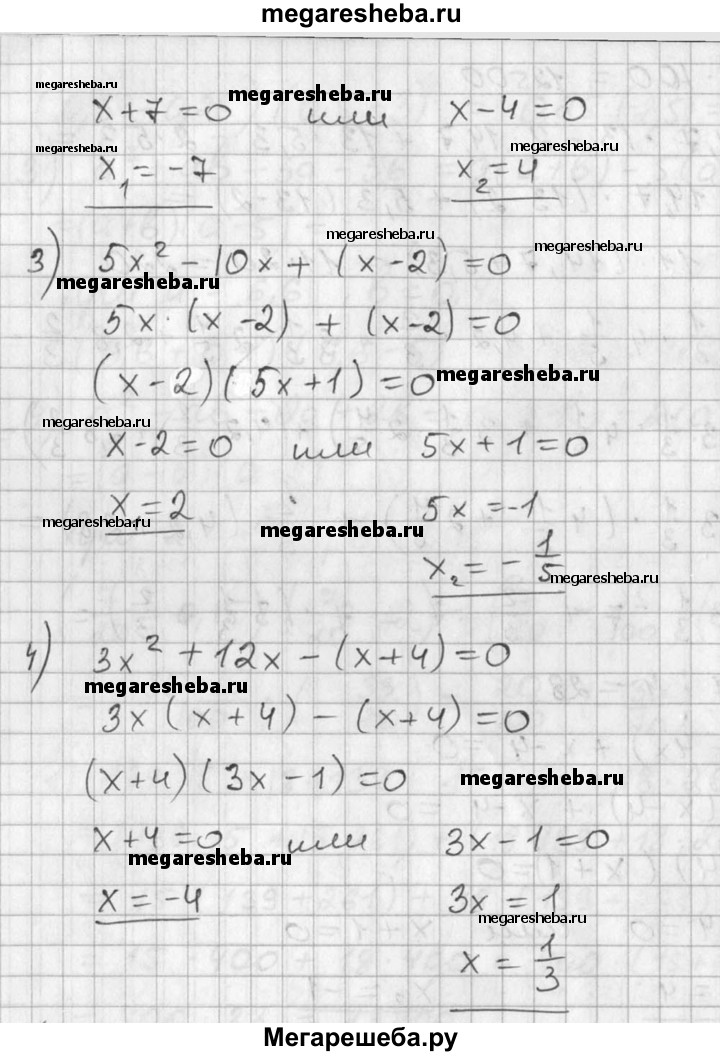 megaresheba.ru
megaresheba.ru
x+7=0 или x-4=0
megaresheba.ru
megaresheba.ru
x₁=-7 x₂=4
megaresheba.ru
megaresheba.ru
3) 5x²-10x+(x-2)=0
megaresheba.ru
5x·(x-2)+(x-2)=0
(x-2)(5x+1)=0
megaresheba.ru
megaresheba.ru
x-2=0 или 5x+1=0
x₁=2 5x=-1
megaresheba.ru
megaresheba.ru
x₂=-1/5
megaresheba.ru
4) 3x²+12x-(x+4)=0
megaresheba.ru
3x(x+4)-(x+4)=0
(x+4)(3x-1)=0
megaresheba.ru
x+4=0 или 3x-1=0
megaresheba.ru
x=-4 3x=1
megaresheba.ru
x=1/3
Мегарешеба.ру